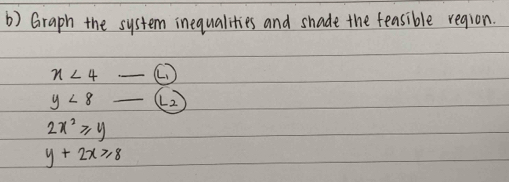 b) Graph the system inequalities and shade the feasible region.
x < 4 — L₁
y < 8 — L₂
2x² ≥ y
y + 2x ≥ 8